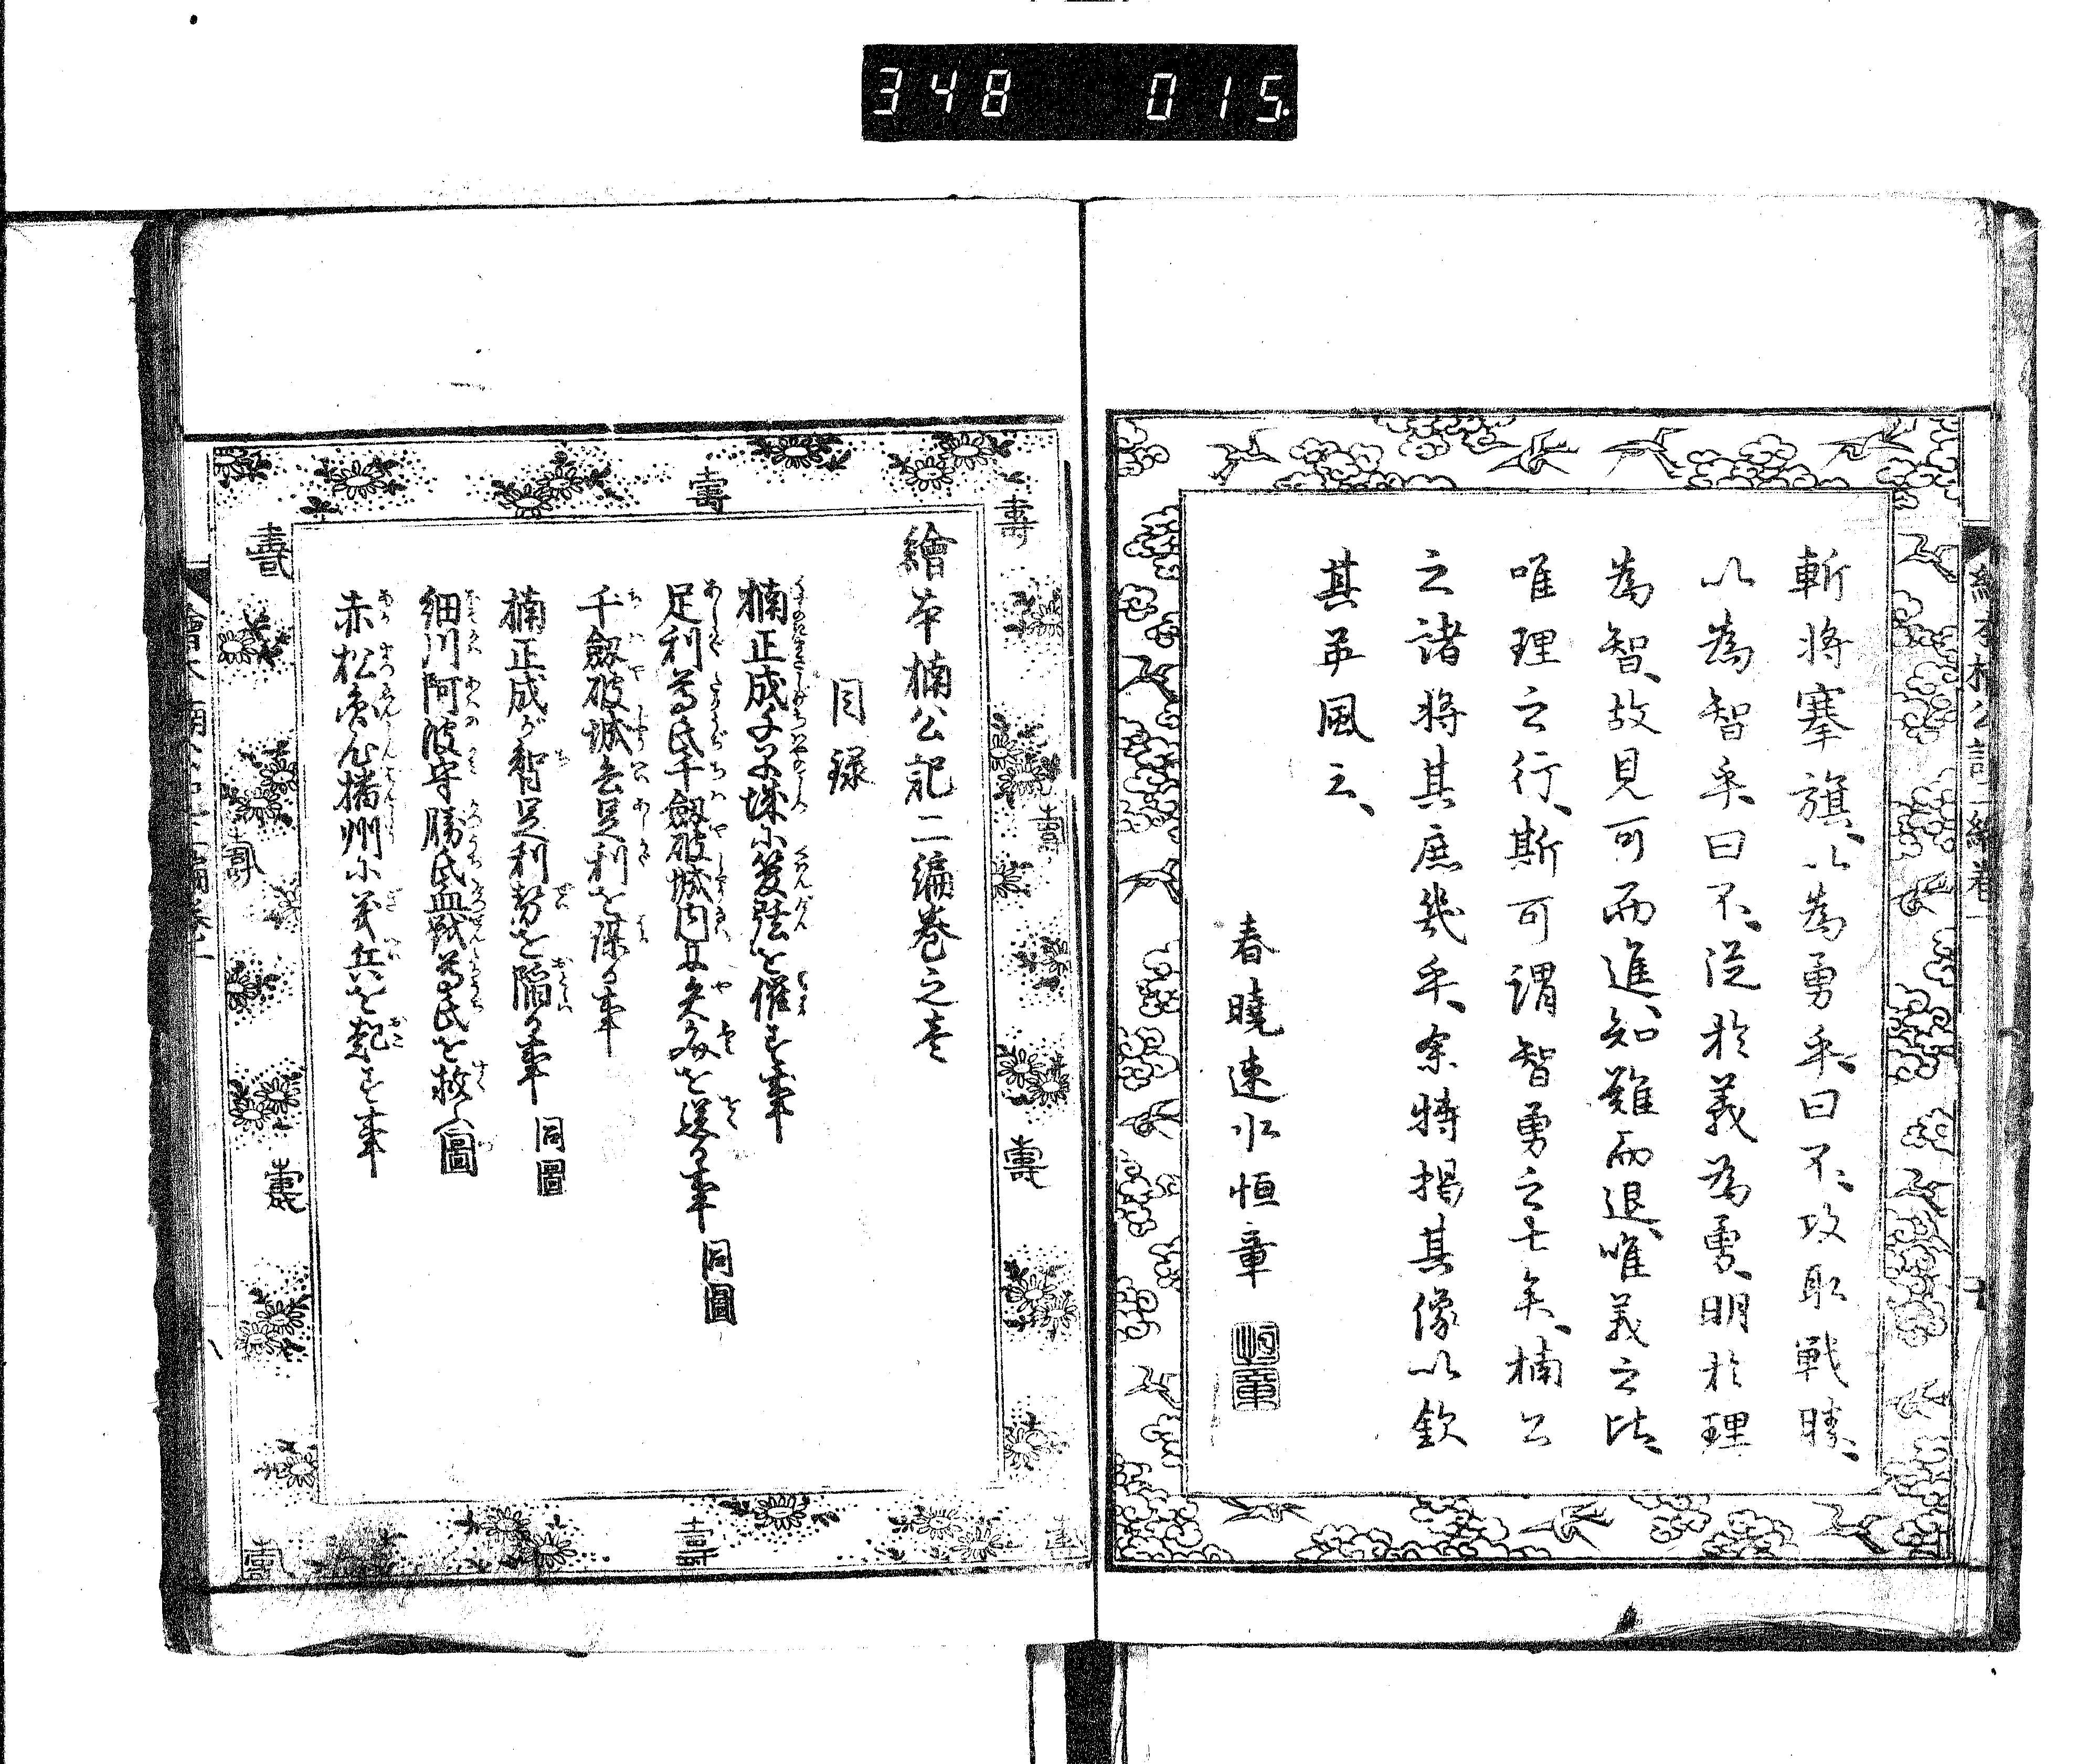 348 015
斬将搴旗、以為勇乎、曰不、攻取戦勝、
以為智乎曰不、従於義為勇、明於理
為智、故見可而進、知難而退、唯義之比、
唯理之行、斯可謂智勇之士矣、楠公
之諸将其庶幾乎、余特掲其像以欽
其英風云、
春曉速水恒章
恒章
繪本楠公記二編巻之壱
目録
楠正成千早城に管弦を催す事
足利尊氏千劔破城内に矢文を送る事 同圖
千劔破城兵足利を謀る事
楠正成が智足利勢を陥る事 同圖
細川阿波守勝氏血戦尊氏を救ふ圖
赤松播州に義兵を起す事